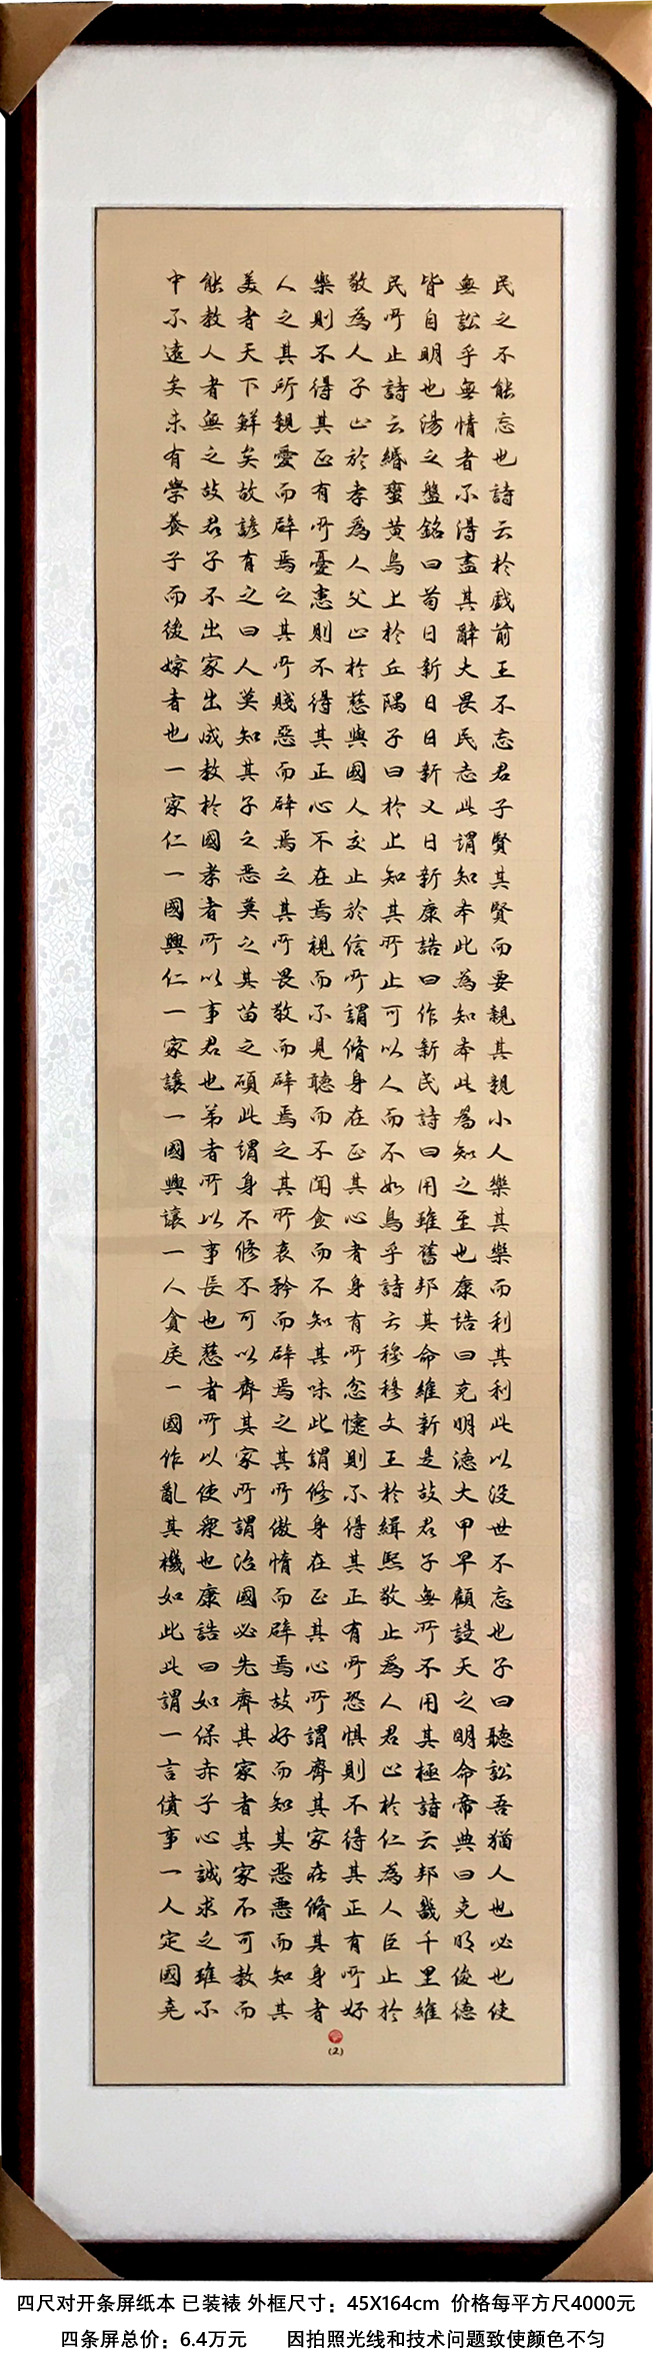 民之不能忘也詩云於戲前王不忘君子賢其賢而要親其親小人樂其樂而利其利此以沒世不忘也子曰聽訟吾猶人也必也使
無訟乎無情者不得盡其辭大畏民志此謂知本此為知本此為知之至也康誥曰克明德大甲早顧設天之明命帝典曰克明俊德
皆自明也湯之盤銘曰苟日新日日新又日新康誥曰作新民詩曰用雖舊邦其命維新是故君子無所不用其極詩云邦畿千里維
民所止詩云緡蠻黃鳥上於丘隅子曰於止知其所止可以人而不如鳥乎詩云穆穆文王於緝熙敬止為人君止於仁為人臣止於
敬為人子止於孝為人父止於慈與國人交止於信所謂脩身在正其心者身有所忿懥則不得其正有所恐懼則不得其正有所好
樂則不得其正有所憂患則不得其正心不在焉視而不見聽而不聞食而不知其味此謂修身在正其心所謂齊其家在脩其身者
人之其所親愛而辟焉之其所賤惡而辟焉之其所畏敬而辟焉之其所哀矜而辟焉之其所傲惰而辟焉故好而知其惡惡而知其
美者天下鮮矣故諺有之曰人莫知其子之惡莫之其苗之碩此謂身不修不可以齊其家所謂治國必先齊其家者其家不可教而
能教人者無之故君子不出家出成教於國孝者所以事君也弟者所以事長也慈者所以使衆也康誥曰如保赤子心誠求之雖不
中不遠矣未有學養子而後嫁者也一家仁一國興仁一家讓一國興讓一人貪戾一國作亂其機如此此謂一言僨事一人定國堯
(2)
四尺对开条屏纸本 已装裱 外框尺寸：45X164cm 价格每平方尺4000元
四条屏总价：6.4万元 因拍照光线和技术问题致使颜色不匀